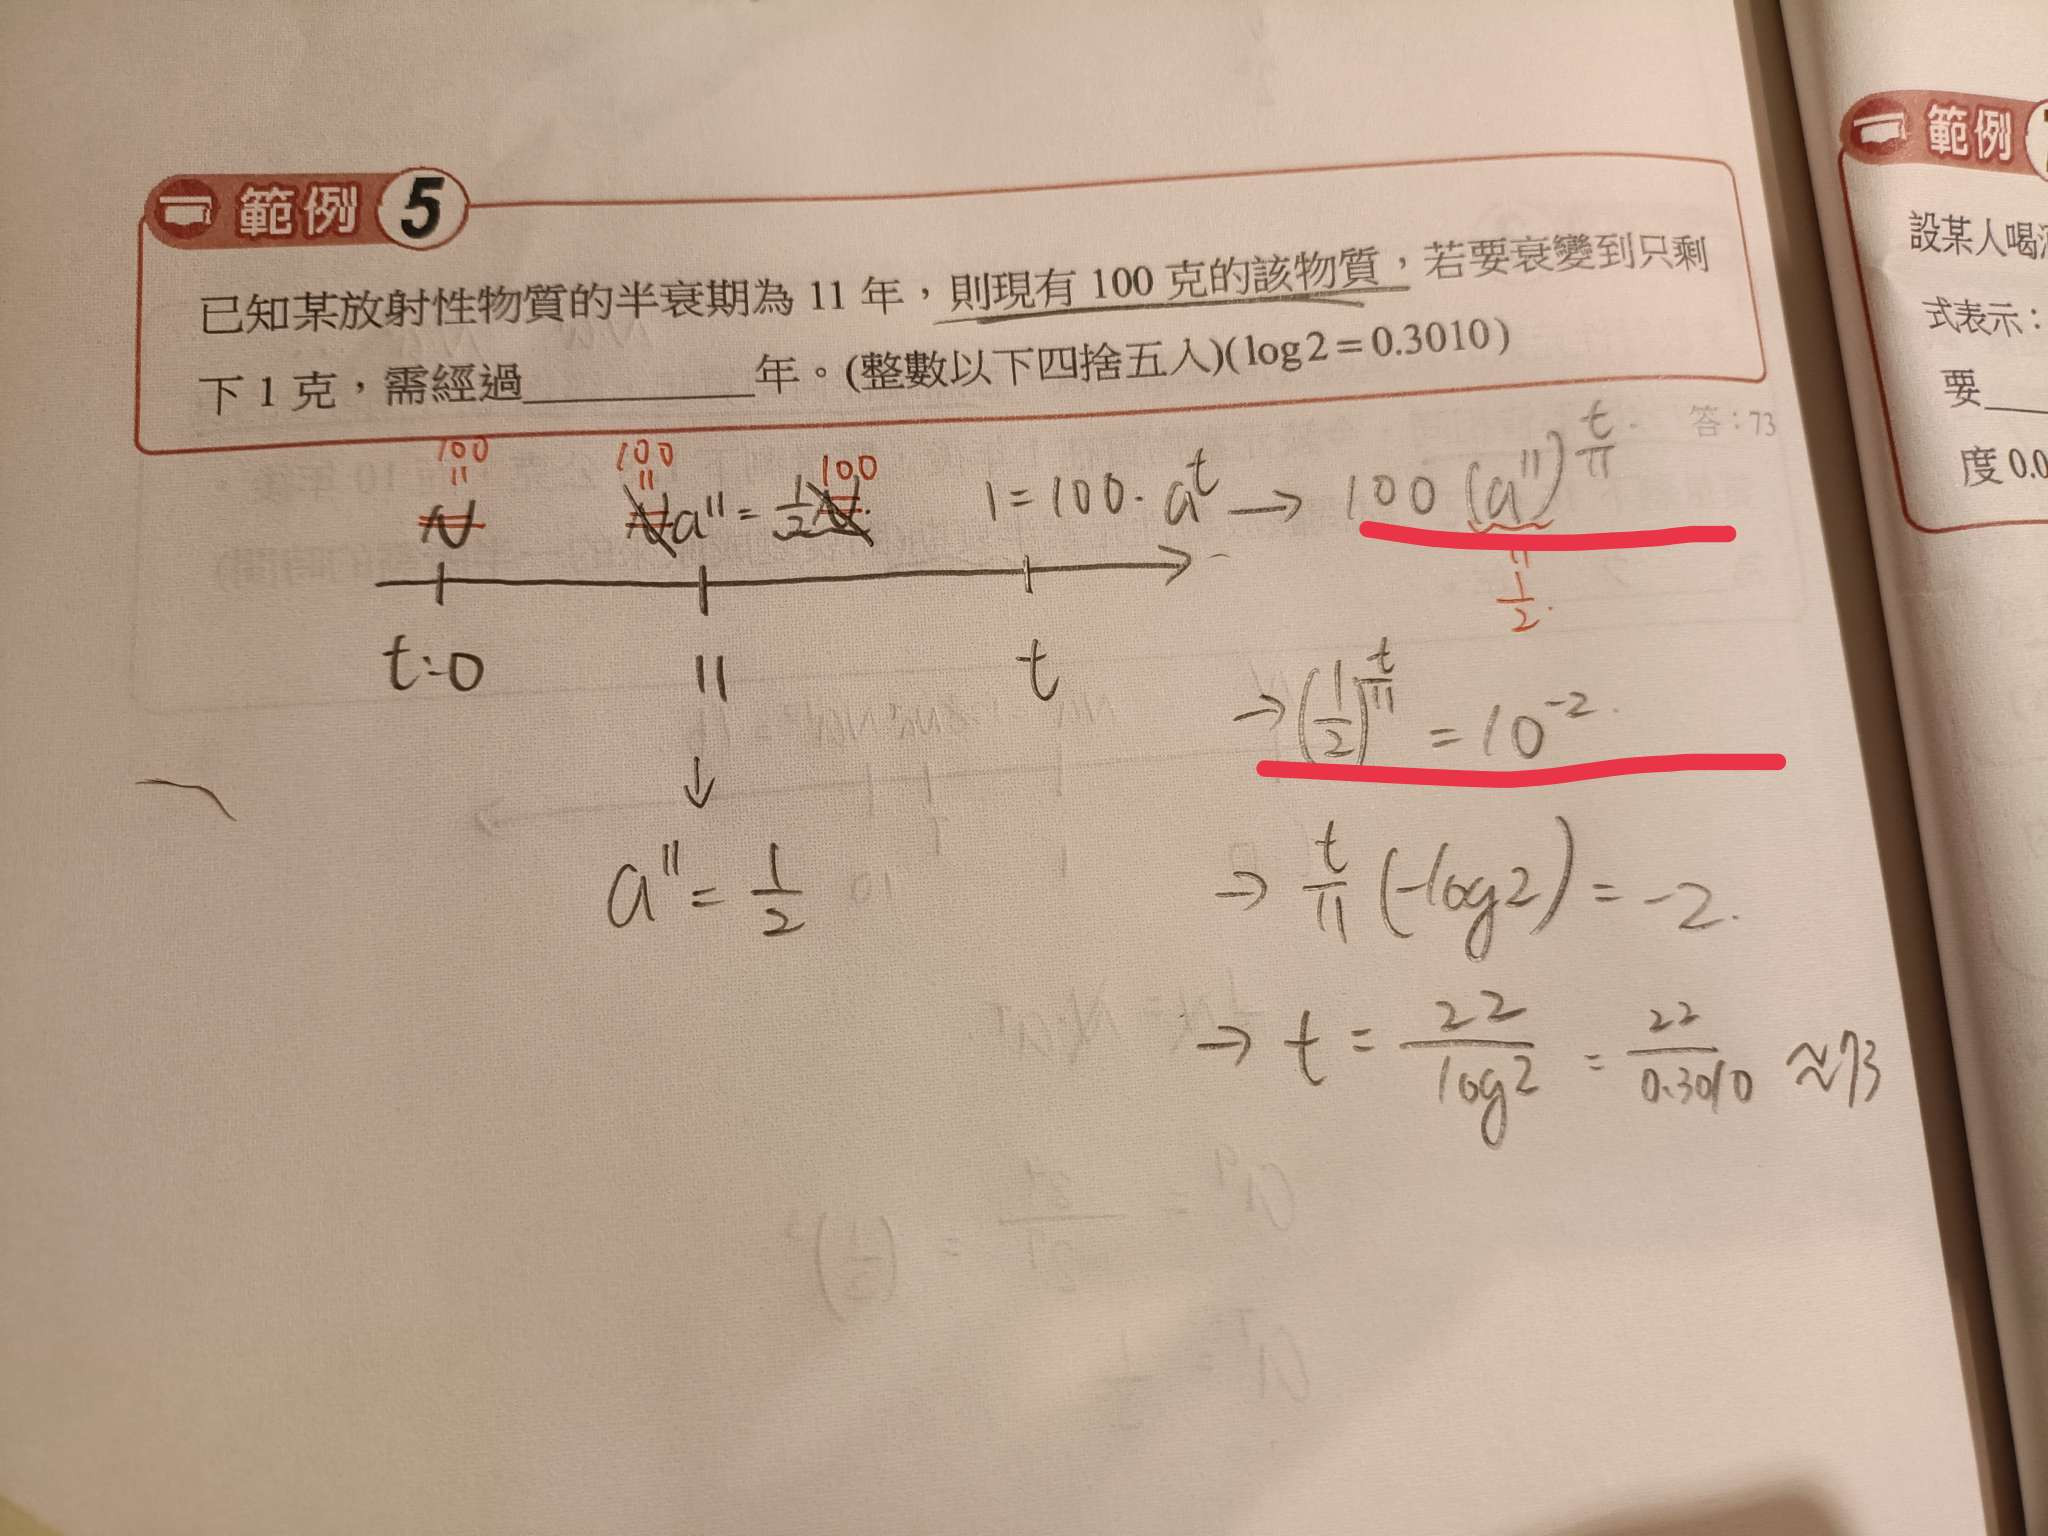 範例 5
已知某放射性物質的半衰期為 11 年，則現有 100 克的該物質，若要衰變到只剩
下 1 克，需經過________年。(整數以下四捨五入)(log2=0.3010)
答：73
100 100 100
N Na¹¹=½N. 1=100·a^t → 100(a¹¹)^(t/11)
½.
t=0 11 t
→(½)^(t/11) = 10⁻².
↓
a¹¹=½
→ t/11 (-log2) = -2.
→ t = 22/log2 = 22/0.3010 ≈73
範例
設某人喝
式表示：
要
度 0.0